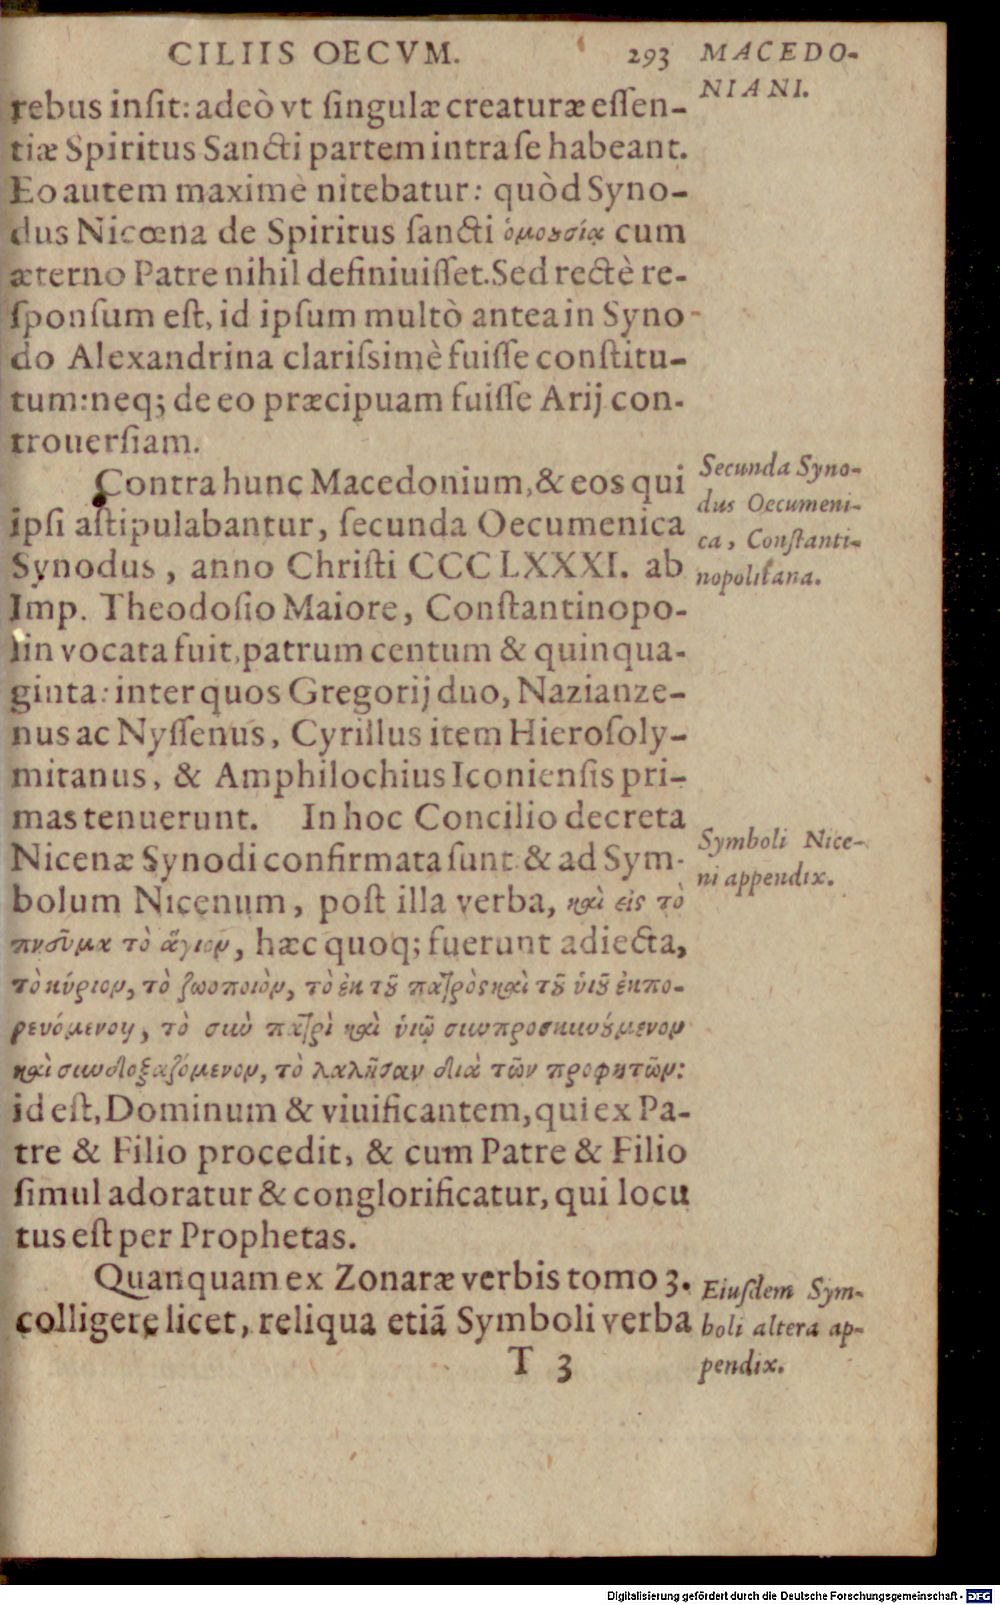 CILIIS OECVM. 293
MACEDO-
NIANI.
rebus insit: adeò vt singulæ creaturæ essen-
tiæ Spiritus Sancti partem intra se habeant.
Eo autem maximè nitebatur: quòd Syno-
dus Nicœna de Spiritus sancti ὁμουσίᾳ cum
æterno Patre nihil definiuisset. Sed rectè re-
sponsum est, id ipsum multò antea in Syno-
do Alexandrina clarissimè fuisse constitu-
tum: neq; de eo præcipuam fuisse Arij con-
trouersiam.
Contra hunc Macedonium, & eos qui
ipsi astipulabantur, secunda Oecumenica
Synodus, anno Christi CCCLXXXI. ab
Imp. Theodosio Maiore, Constantinopo-
lin vocata fuit, patrum centum & quinqua-
ginta: inter quos Gregorij duo, Nazianze-
nus ac Nyssenus, Cyrillus item Hierosoly-
mitanus, & Amphilochius Iconiensis pri-
mas tenuerunt. In hoc Concilio decreta
Nicenæ Synodi confirmata sunt: & ad Sym-
bolum Nicenum, post illa verba, καὶ εἰς τὸ
πνεῦμα τὸ ἅγιον, hæc quoq; fuerunt adiecta,
τὸ κύριον, τὸ ζωοποιὸν, τὸ ἐκ τȣ͂ πατρὸς καὶ τȣ͂ ὑιȣ͂ ἐκπο-
ρευόμενον, τὸ σὺν πατρὶ καὶ ὑιῷ συνπροσκυνȣ́μενον
καὶ συνδοξαζόμενον, τὸ λαλῆσαν διὰ τῶν προφητῶν:
id est, Dominum & viuificantem, qui ex Pa-
tre & Filio procedit, & cum Patre & Filio
simul adoratur & conglorificatur, qui locu
tus est per Prophetas.
Quanquam ex Zonaræ verbis tomo 3.
colligere licet, reliqua etiã Symboli verba
T 3
Secunda Syno-
dus Oecumeni-
ca, Constanti-
nopolitana.
Symboli Nice-
ni appendix.
Eiusdem Sym-
boli altera ap-
pendix.
Digitalisierung gefördert durch die Deutsche Forschungsgemeinschaft - DFG